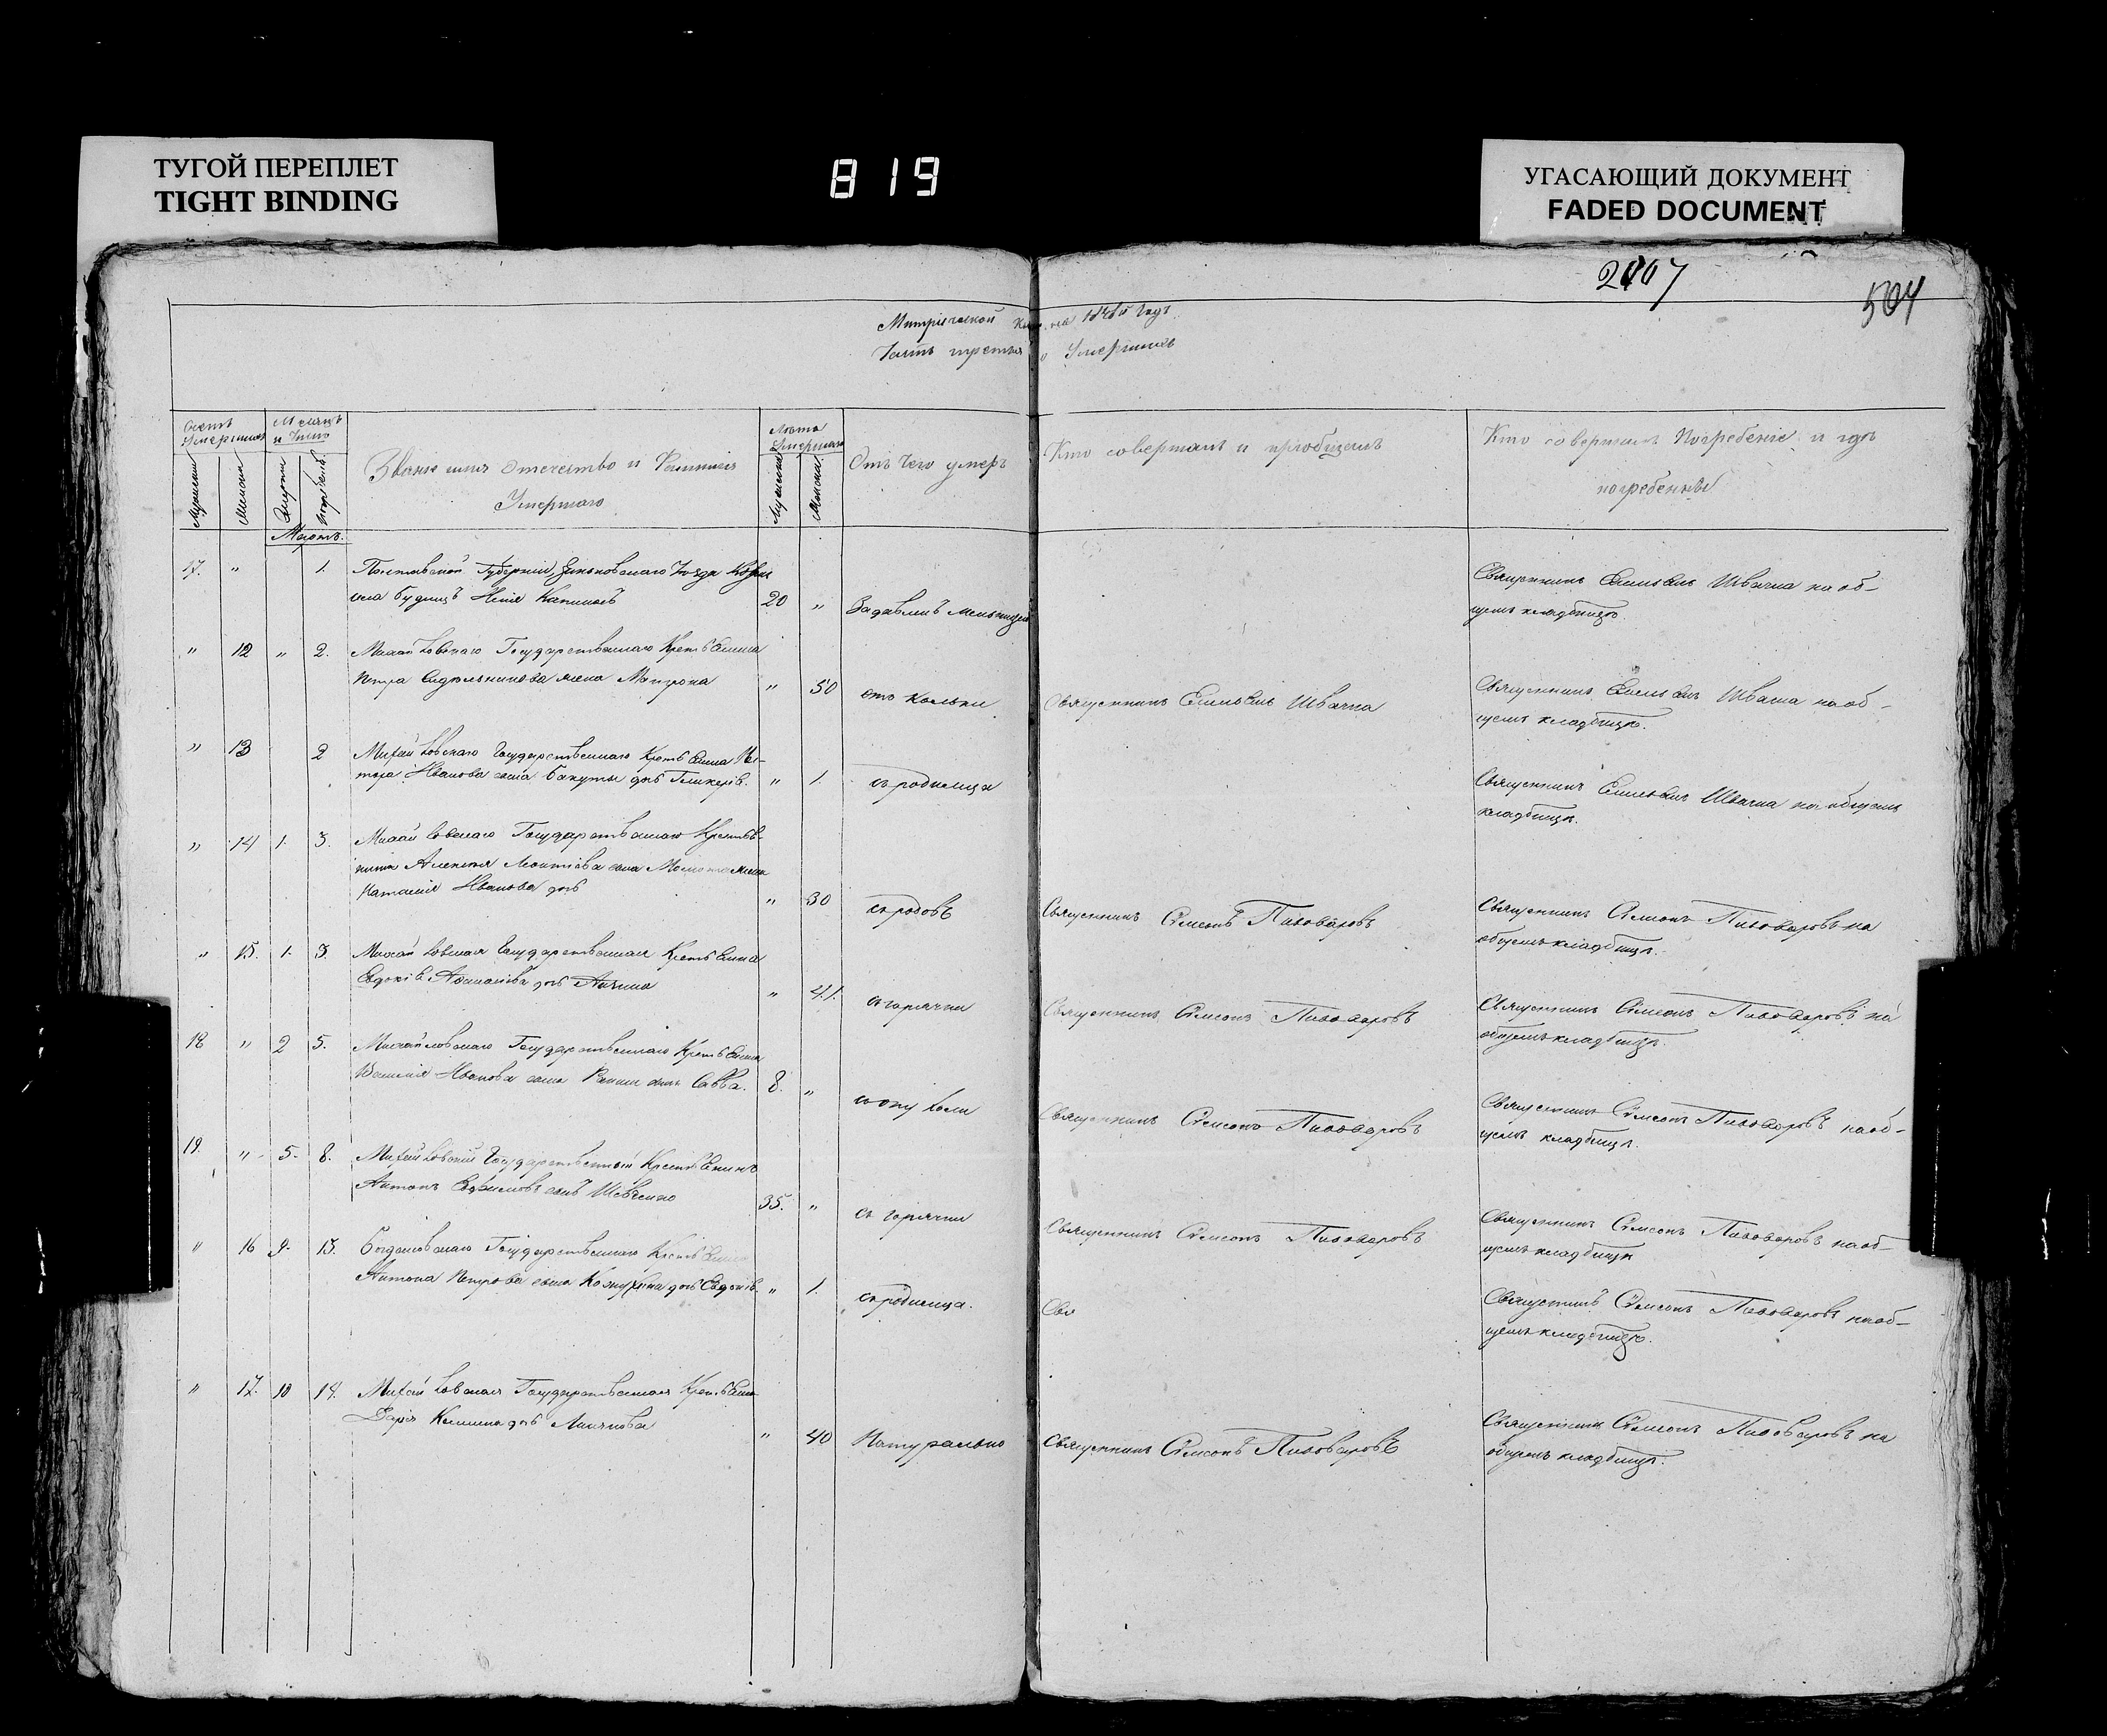 ТУГОЙ ПЕРЕПЛЕТ
TIGHT BINDING
819
УГАСАЮЩИЙ ДОКУМЕНТ
FADED DOCUMENT
2107
504
Метрической
Годъ
Часть третья о Умершихъ
Счетъ Умершихъ
Мѣсяцъ и Число
Званіе имя отечество и Фамилія
Умершаго
Лѣта Умершаго
Отъ чего умеръ
Кто совершалъ и пріобщалъ
Кто совершалъ Погребеніе и гдѣ
погребены
Мартъ.
17. " 1. Полтавской Губерніи Зеньковскаго Уѣзда
села Будищъ 20 " Задавленъ мельницей
Священникъ Емельянъ Швачка на об-
щемъ кладбищѣ.
" 12 " 2. Михайловскаго Государственнаго Крестьянина
Петра Сидельникова жена Матрона " 50 отъ кольки Священникъ Емельянъ Швачка
Священникъ Емельянъ Швачка на об-
щемъ кладбищѣ.
" 13 2 Михайловскаго Государственнаго Крестьянина Пе-
тра Иванова сына Бакуты дочь Гликерія. " 1. съ родимца
Священникъ Емельянъ Швачка на общемъ
кладбищѣ.
" 14 1. 3. Михайловскаго Государственнаго Крестья-
нина Алексея Леонтіева сына жена
Наталія Иванова дочь " 30 съ родовъ Священникъ Симеонъ Пивоваровъ
Священникъ Симеонъ Пивоваровъ на
общемъ кладбищѣ.
" 15. 1. 3. Михайловская Государственная Крестьянка
Евдокія Афанасіева дочь " 41. съ горячки Священникъ Симеонъ Пивоваровъ
Священникъ Симеонъ Пивоваровъ на
общемъ кладбищѣ.
18 " 2 5. Михайловскаго Государственнаго Крестьянина
Василія Иванова сына сынъ Савва. 8. " съ опухоли Священникъ Симеонъ Пивоваровъ
Священникъ Симеонъ Пивоваровъ на об-
щемъ кладбищѣ.
19. " 5. 8. Михайловскій Государственный Крестьянинъ
Антонъ Евфимовъ сынъ Шевченко 35. " съ горячки Священникъ Симеонъ Пивоваровъ
Священникъ Симеонъ Пивоваровъ на об-
щемъ кладбищѣ
" 16 9. 13. Богдановскаго Государственнаго Крестьянина
Антона Петрова сына дочь Евдокія. " 1. съ родимца. Свя
Священникъ Симеонъ Пивоваровъ на об-
щемъ кладбищѣ.
" 17. 10 14. Михайловская Государственная Крестьянка
Дарія дочь " 40 Натурально Священникъ Симеонъ Пивоваровъ
Священникъ Симеонъ Пивоваровъ на
общемъ кладбищѣ.